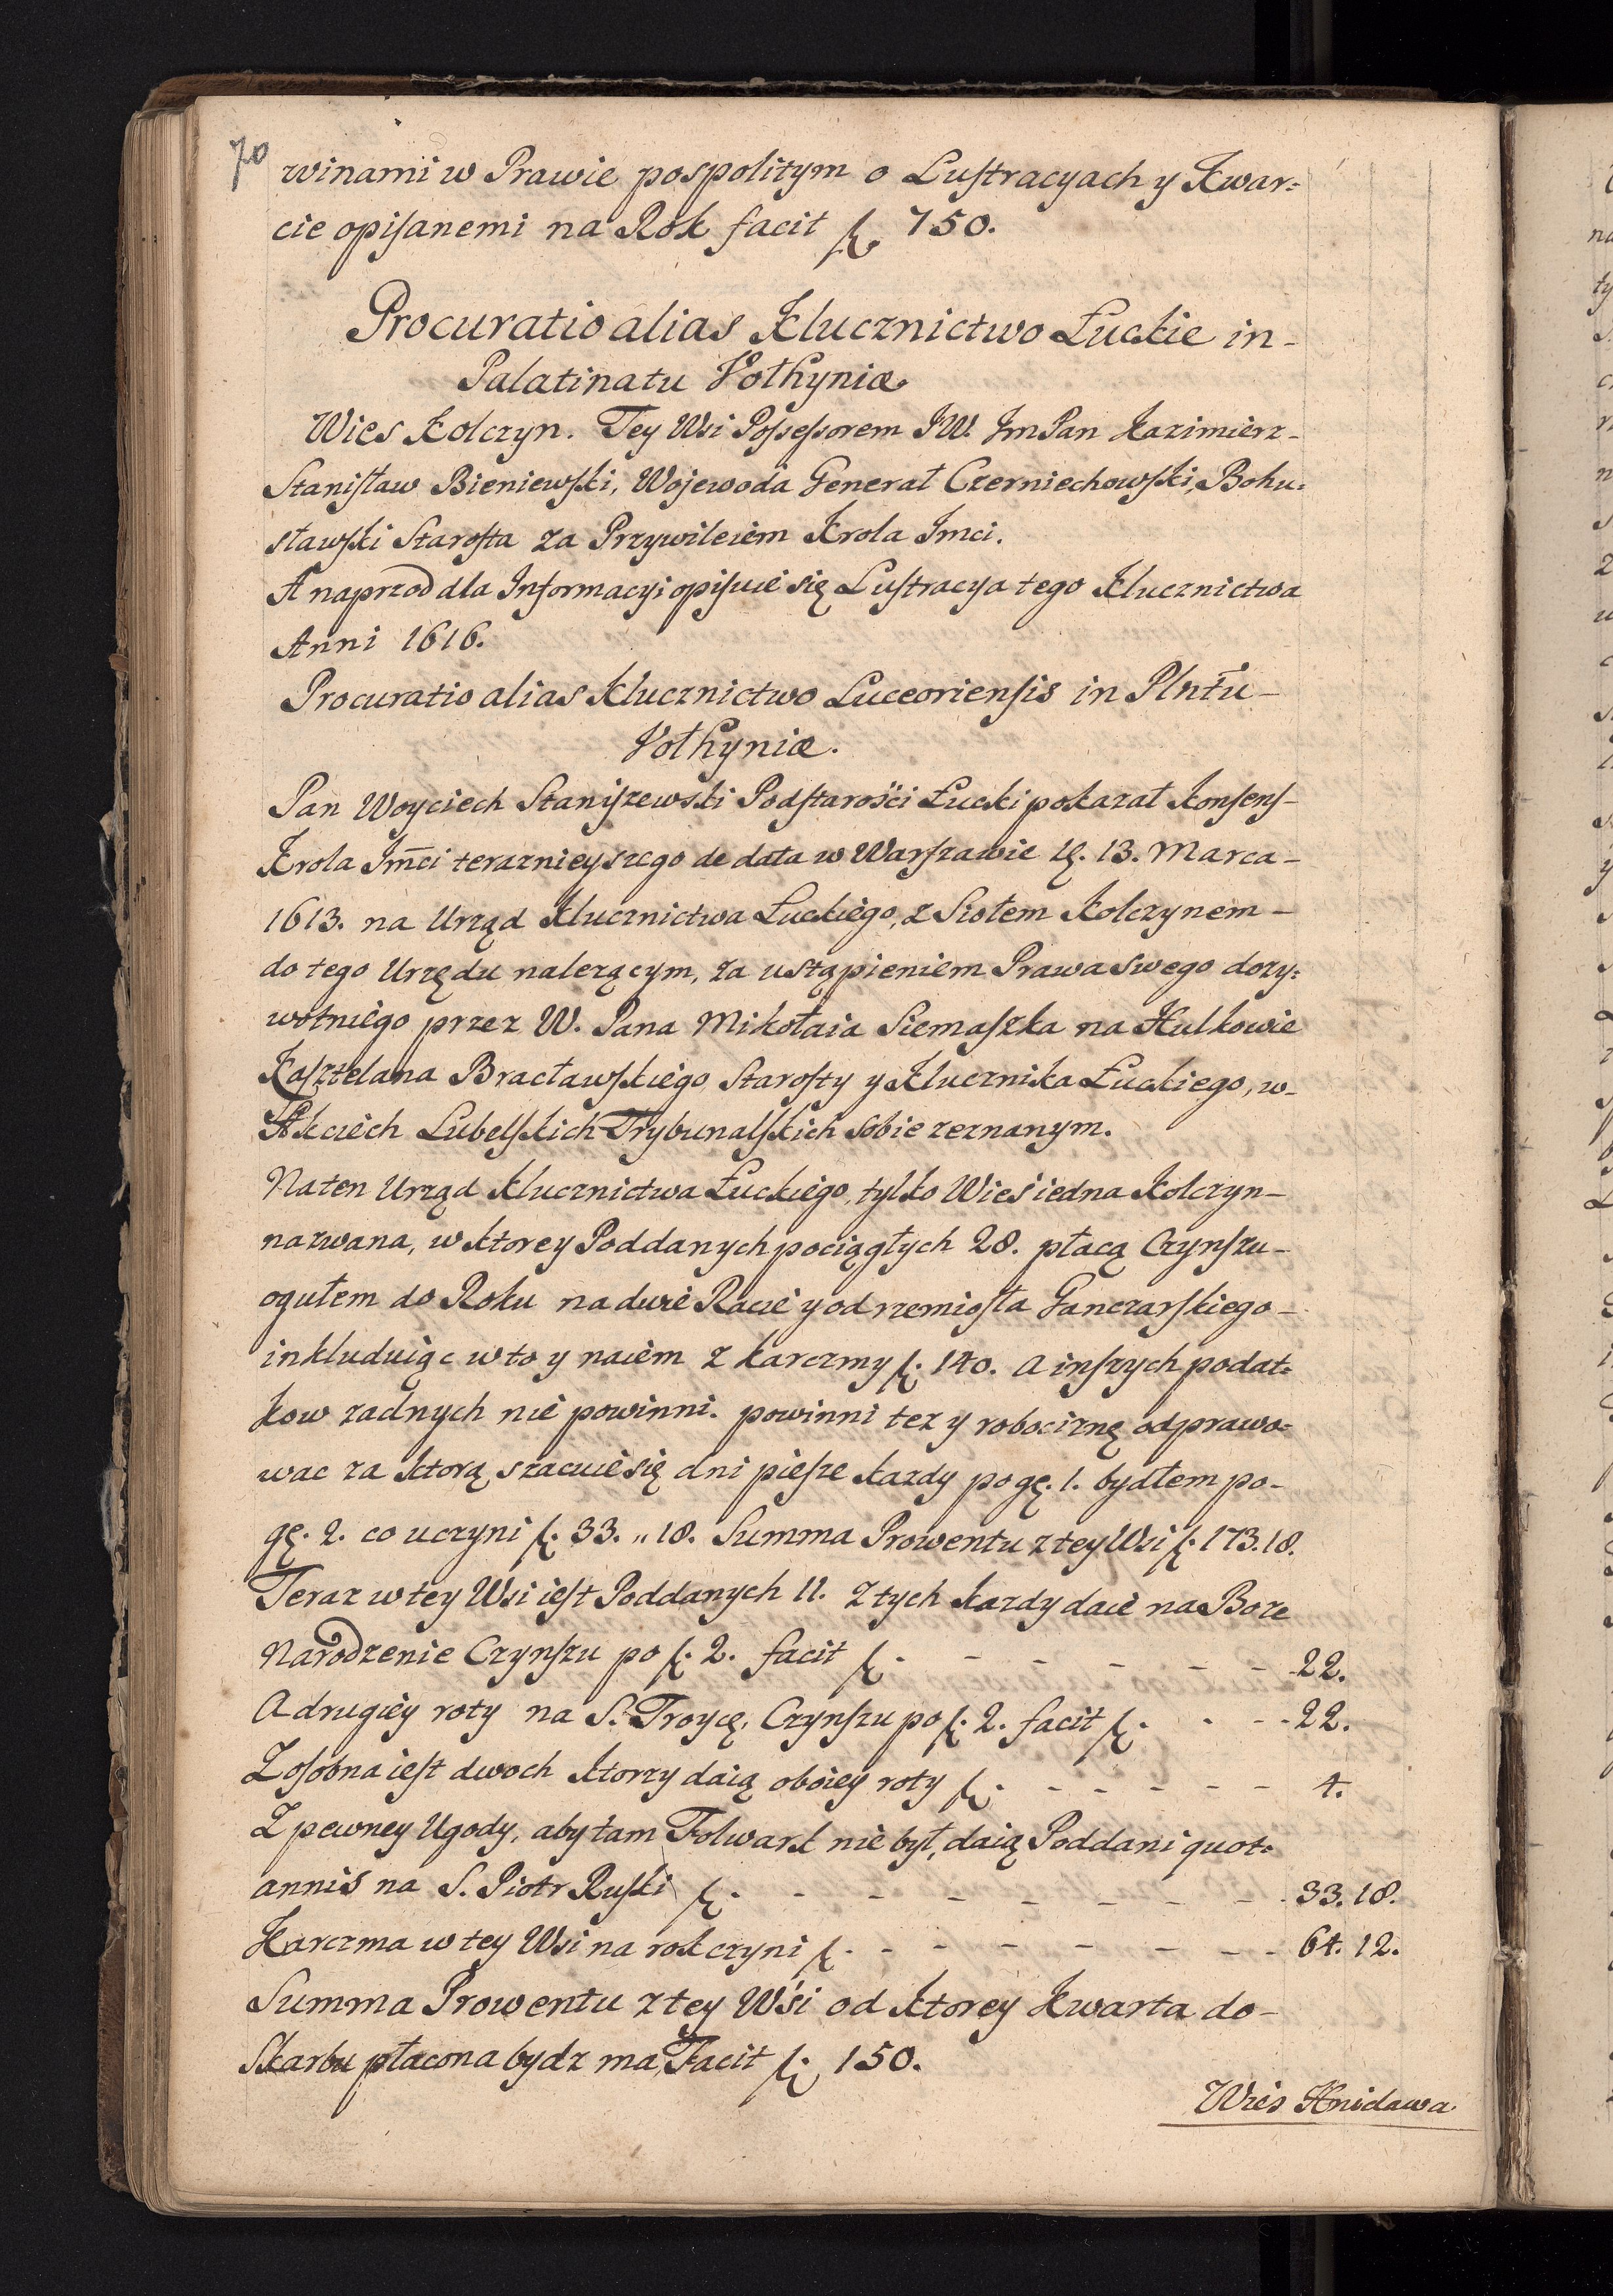 70
winami w Prawie pospolitym o Luſtracyach y Kwar=
cie opiſanemi na Rok facit f. 750.
Procuratio alias Klucznictwo Łuckie in-
Palatinatu Vołhyniæ.
Wies Kolczyn. Tey Wsi Poſseſsorem JW. Jm Pan Kazimierz-
Staniſław Bieniewſki, Wojewoda Generał Czerniechowſki, Bohu=
sławſki Staroſta za Przywileiem Krola Jmci.
A naprzod dla Informacyi opiſuie się Luſtracya tego Klucznictwa
Anni 1616.
Procuratio alias Klucznictwo Luceorienſis in Plntu-
Vołhyniæ.
Pan Woyciech Staniſzewski Podſtarości Łucki pokazał Konſenſ-
Krola Jmci teraznieyszego de data w Warſzawie 13. Marca-
1613. na Urząd Klucznictwa Łuckiego, z Siołem Kolczynem-
do tego Urzędu nalezącym, za ustąpieniem Prawa swego dozy=
wotniego przez W. Pana Mikołaia Siemaſzka na Hulkowie
Kaſztelana Bracławſkiego, Staroſty y Klucznika Łuckiego, w-
Akciech Lubelſkich Trybunalſkich sobie zeznanym.
Na ten Urząd Klucznictwa Łuckiego, tylko Wieś iedna Kolczyn-
nazwana, w ktorey Poddanych pociągłych 28. płacą Czynſzu-
ogułem do Roku na dwie Racie y od rzemioſła Ganczarſkiego-
inkluduiąc w to y naiem z karczmy f. 140. a inſzych podat=
kow zadnych nie powinni. powinni tez y robociznę odprawo=
wac za ktorą, szacuie się dni pieſze kazdy po gę. 1. bydłem po-
gę. 2. co uczyni f. 33. „ 18. Summa Prowentu z tey Wsi f. 173. 18.
Teraz w tey Wsi ieſt Poddanych 11. Z tych kazdy daie na Boze
Narodzenie Czynſzu po f. 2. facit f. - - - - - - 22.
A drugiey roty na S. Troycę, Czynſzu po f. 2. facit f. - - - 22.
Z oſobna ieſt dwoch ktorzy daią oboiey roty f. - - - - - - 4.
Z pewney Ugody, aby tam Folwark nie był, daią Poddani quot=
annis na S. Piotr Ruſki f. - - - - - - - - 33. 18.
Karczma w tey Wsi na rok czyni f. - - - - - - - 64. 12.
Summa Prowentu z tey Wśi od ktorey Kwarta do-
Skarbu płacona bydz ma, Facit f. 150.
Wies Hnidawa